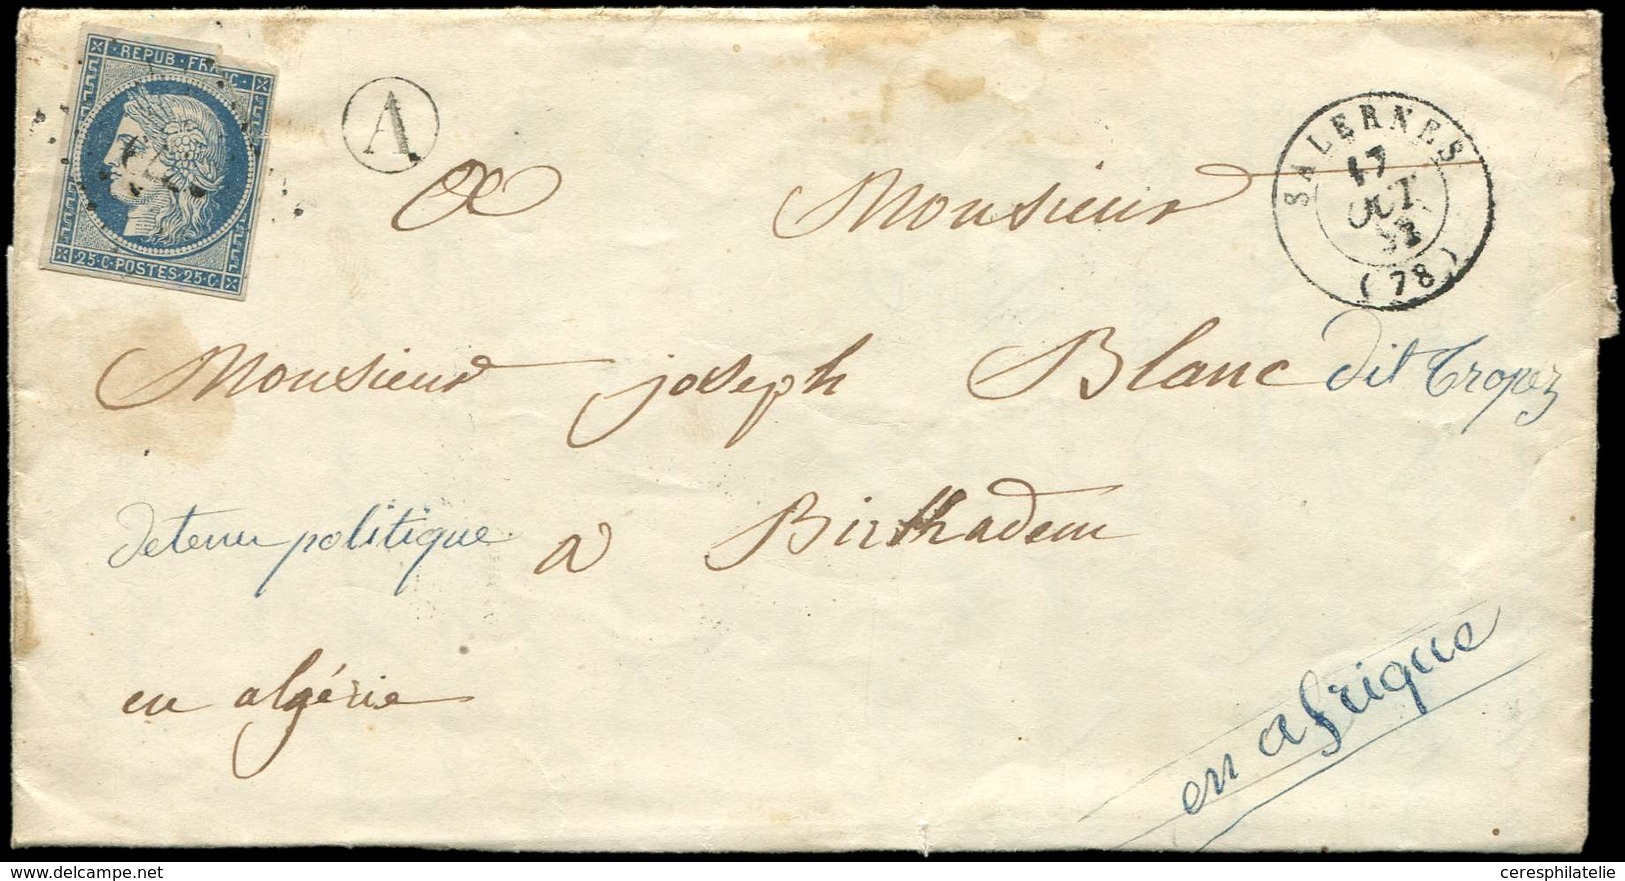 REPUB·FRANC·
25·C·POSTES·25·C·
A
SALERNES
17
OCT
52
(78)
A Monsieur
Monsieur joseph Blanc dit Tropez
detenu politique a Birkhadem
en algérie
en afrique
www.delcampe.net
ceresphilatelie